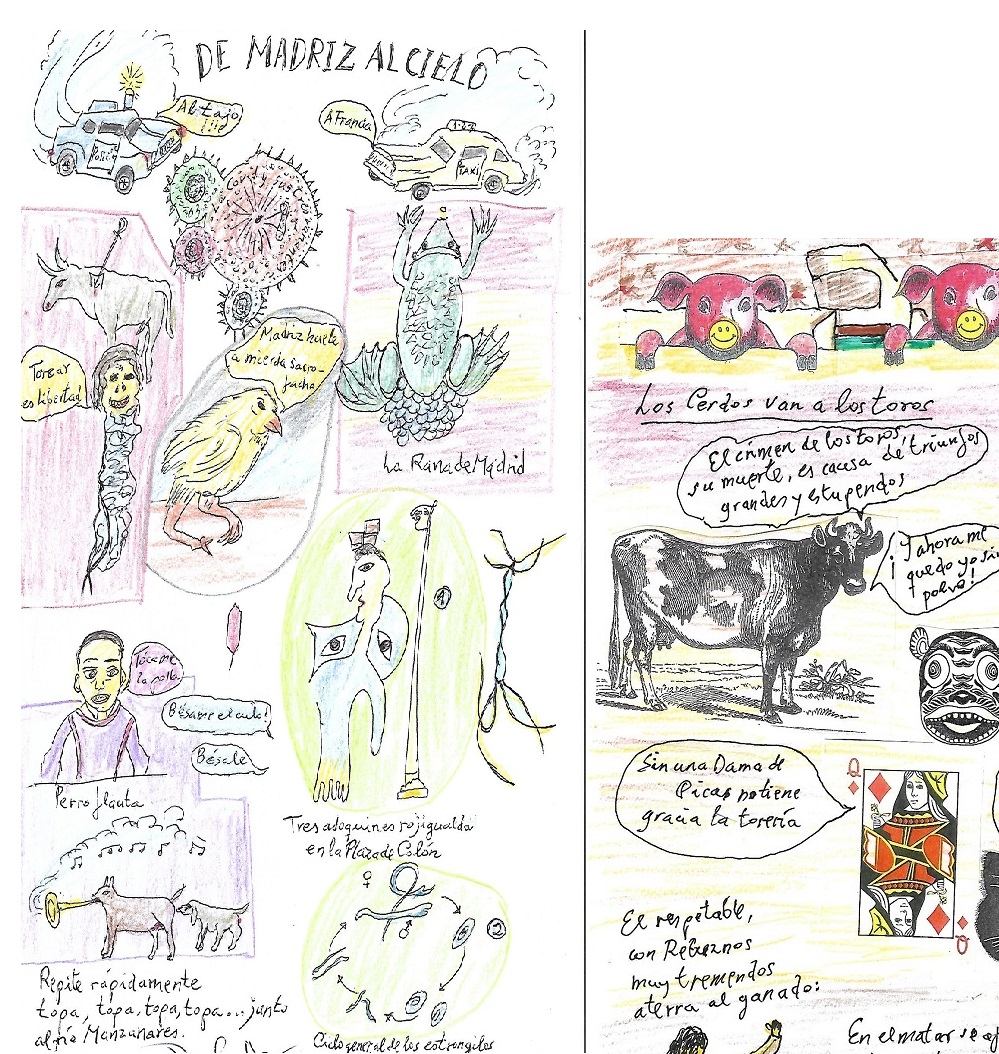 DE MADRIZ AL CIELO
Al tajo
!!!
A Francia
POLICIA
TAXI
Covid y sus
Torear
es libertad!
Madriz huele
a mierda sacro-
facha
La Rana de Madrid
1
Tócame
la polla
Bésame el culo!
Bésale
Perro flauta
Tres adoquines rojigualda
en la Plaza de Colón
♀
♂
2
Repite rápidamente
topa, topa, topa, topa... junto
al río Manzanares.
Ciclo gencial de los estrongilos
Los Cerdos van a los toros
El crimen de los toros,
su muerte, es causa de triunfos
grandes y estupendos
¡Y ahora me
quedo yo sin
polvo!
Sin una Dama de
Picas no tiene
gracia la torería
Q
Q
El respetable,
con Rebuznos
muy tremendos
aterra al ganado:
En el matar se